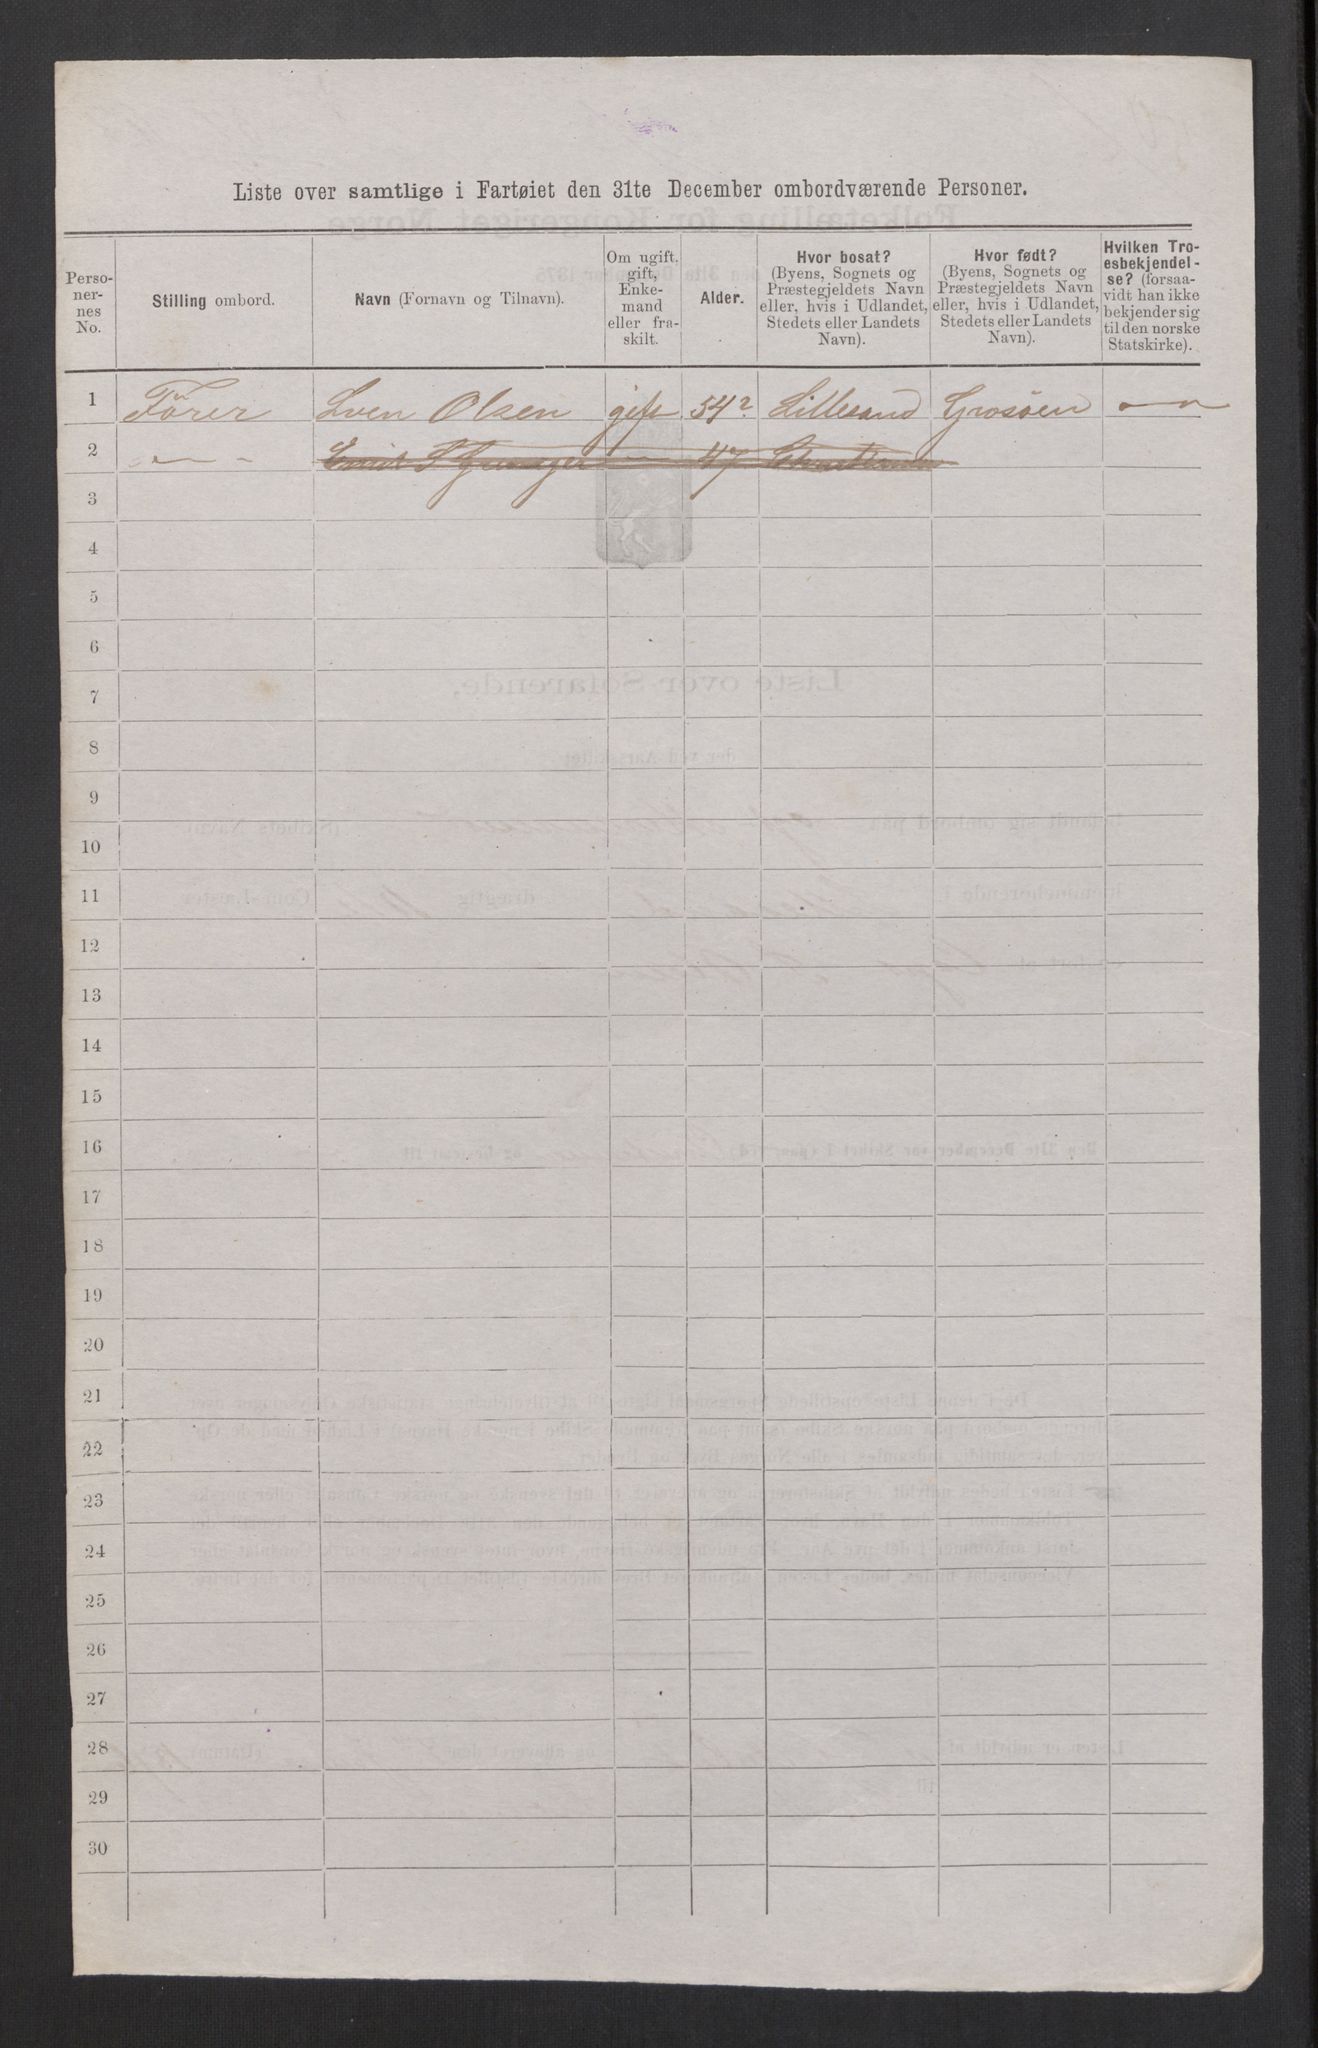 Liste over samtlige i Fartøiet den 31te December ombordværende Personer.
Perso-
ner-
nes
No.
Stilling ombord.
Navn (Fornavn og Tilnavn).
Om ugift,
gift,
Enke-
mand
eller fra-
skilt.
Alder.
Hvor bosat?
(Byens, Sognets og
Præstegjeldets Navn
eller, hvis i Udlandet,
Stedets eller Landets
Navn).
Hvor født?
(Byens, Sognets og
Præstegjeldets Navn
eller, hvis i Udlandet,
Stedets eller Landets
Navn).
Hvilken Tro-
esbekjendel-
se? (forsaa-
vidt han ikke
bekjender sig
til den norske
Statskirke).
1 Förer Sven Olsen gift 54 Lillesand Grosöen
2 47
3
4
5
6
7
8
9
10
11
12
13
14
15
16
17
18
19
20
21
22
23
24
25
26
27
28
29
30